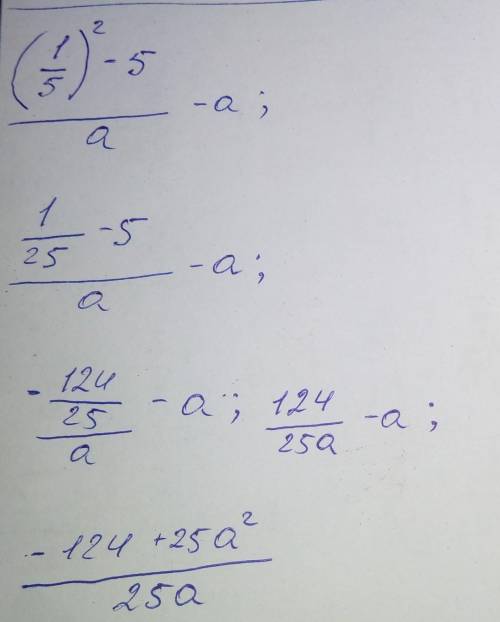 ((1/5)² - 5)/a - a ;
(1/25 - 5)/a - a ;
(- 124/25)/a - a ; 124/25a - a ;
(- 124 + 25a²)/25a